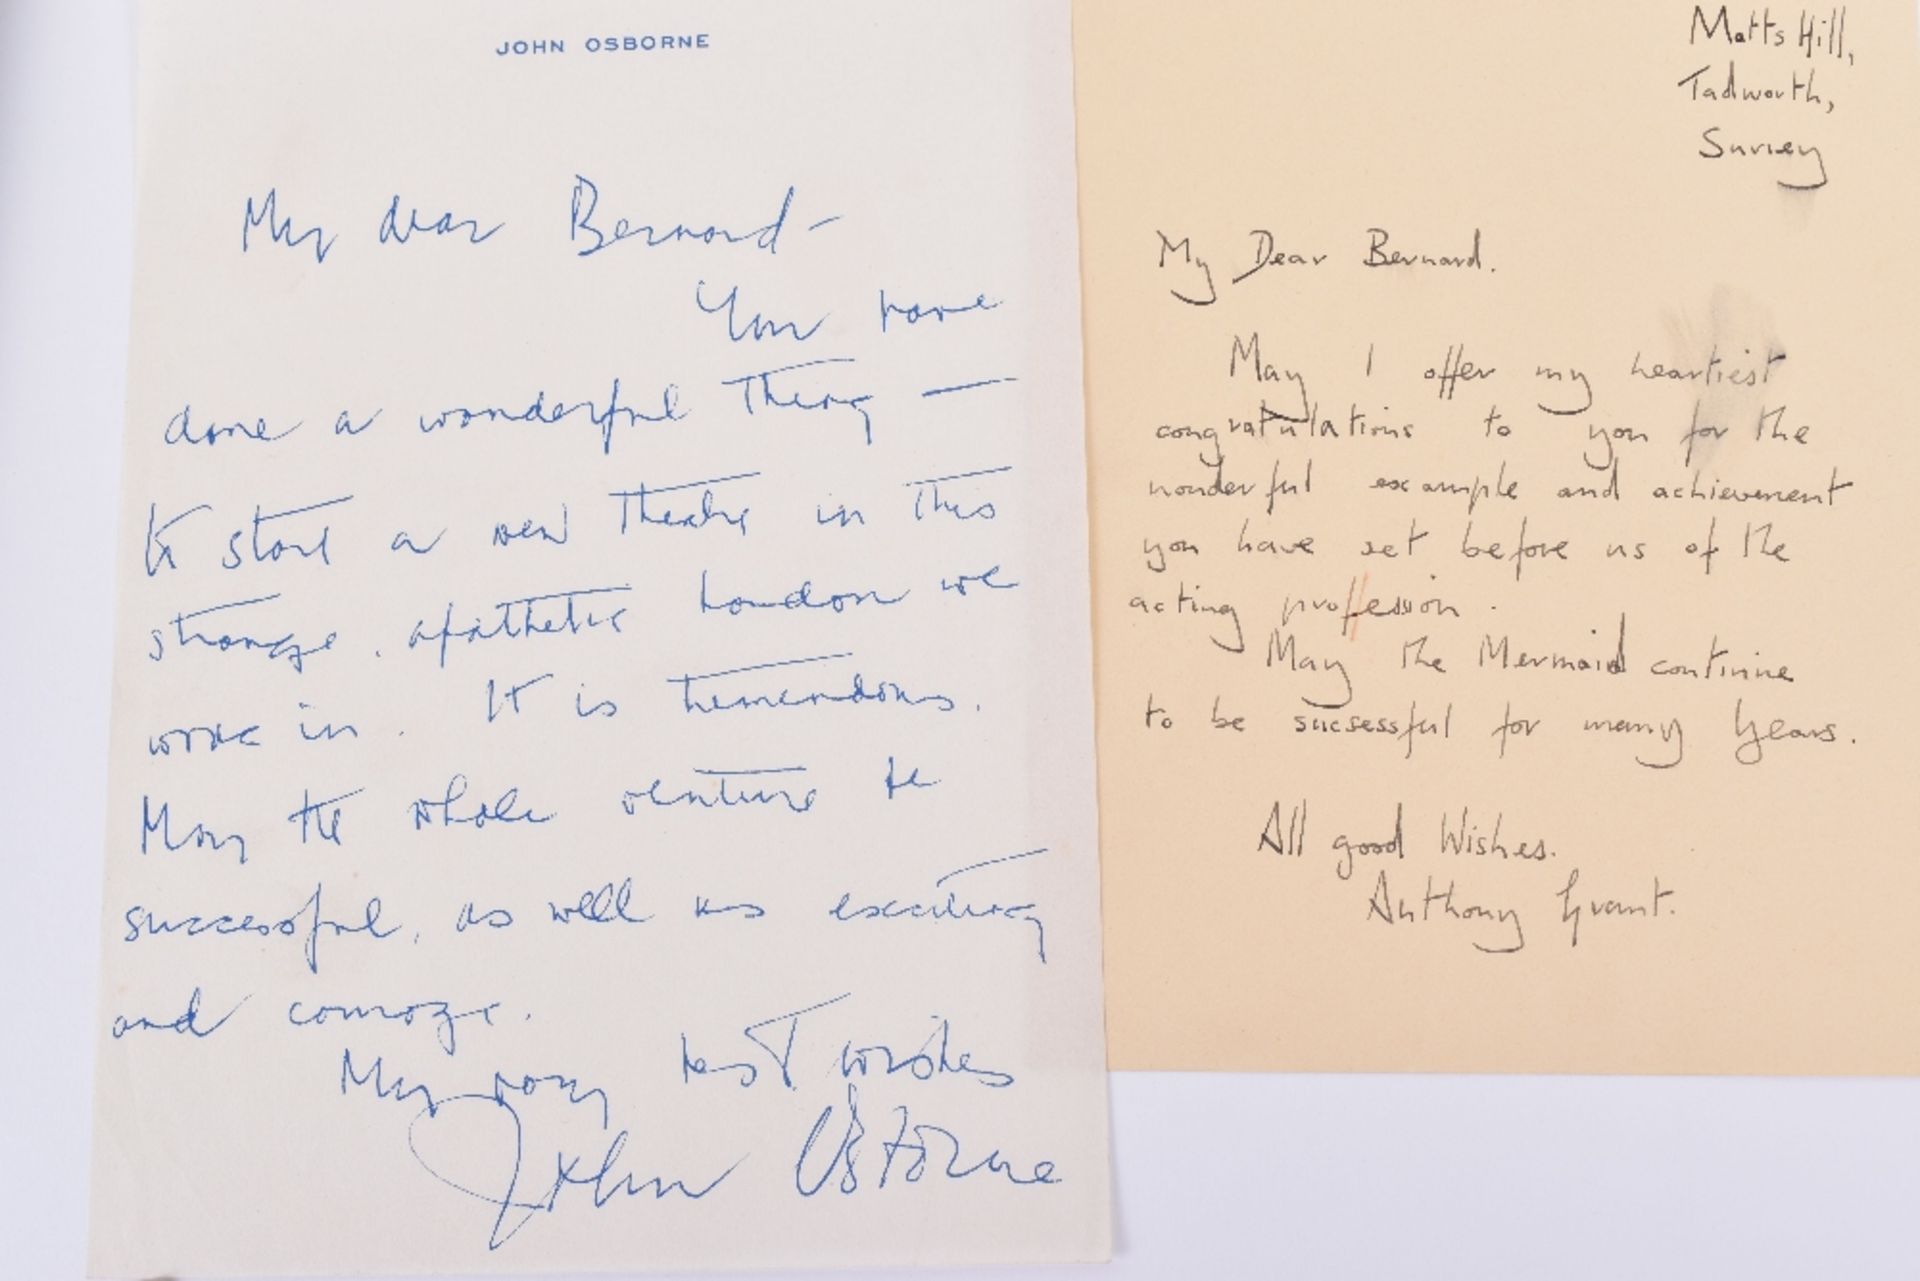 JOHN OSBORNE
My dear Bernard –
You have
done a wonderful thing —
to start a new theatre in this
strange, apathetic London we
work in. It is tremendous.
May the whole venture be
successful, as well as exciting
and courage.
My very best wishes
John Osborne
Matts Hill,
Tadworth,
Surrey
My Dear Bernard.
May I offer my heartiest
congratulations to you for the
wonderful example and achievement
you have set before us of the
acting proffession.
May the Mermaid continue
to be sucsessful for many Years.
All good Wishes.
Anthony Grant.